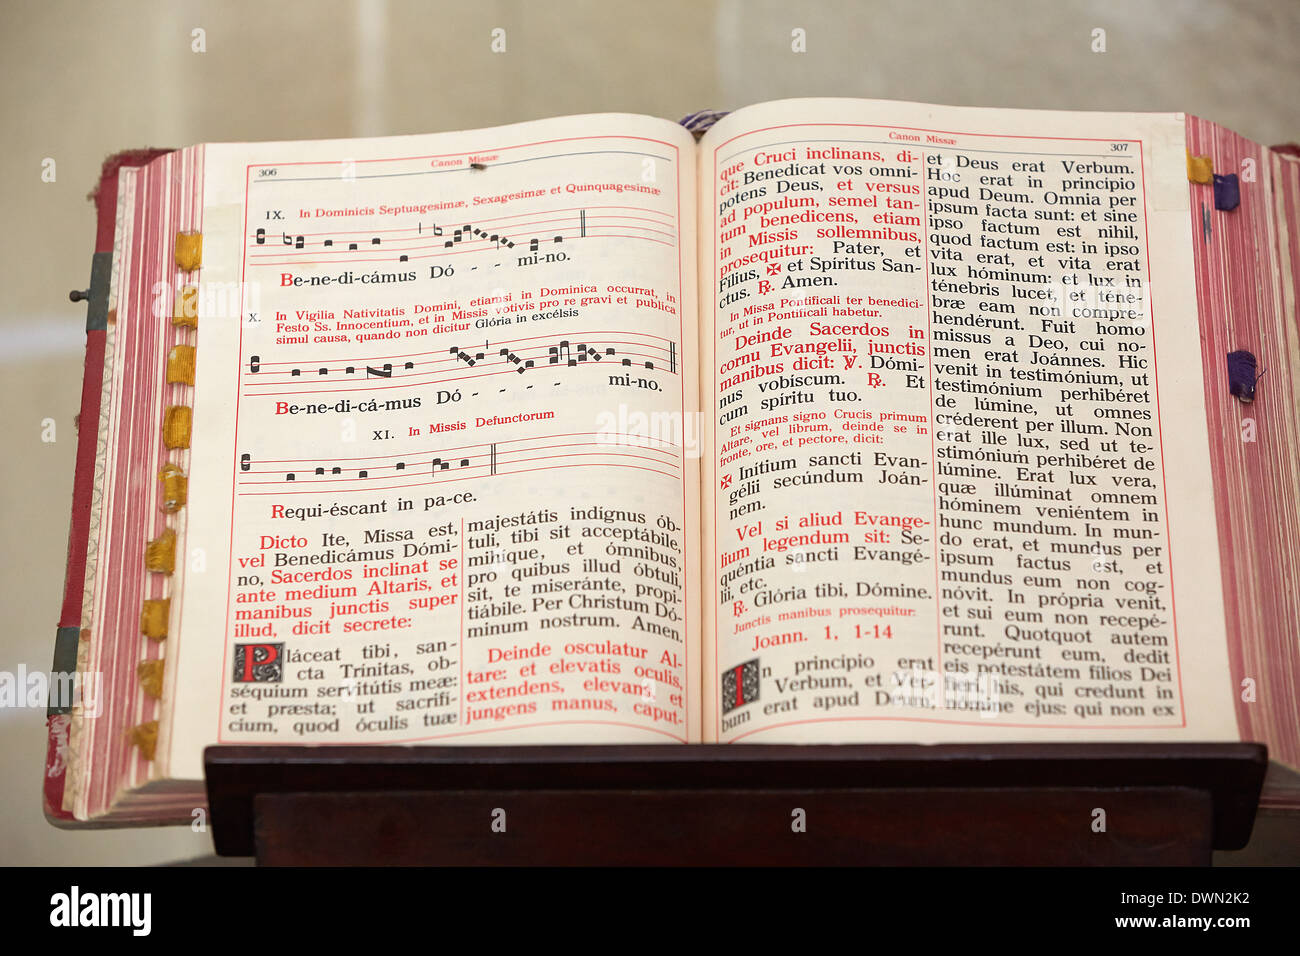 306
Canon Missæ
IX. In Dominicis Septuagesimæ, Sexagesimæ et Quinquagesimæ
Be-ne-di-cámus Dó - - mi-no.
X. In Vigilia Nativitatis Domini, etiamsi in Dominica occurrat, in
Festo Ss. Innocentium, et in Missis votivis pro re gravi et publica
simul causa, quando non dicitur Glória in excélsis
Be-ne-di-cá-mus Dó - - - - mi-no.
XI. In Missis Defunctorum
Requi-éscant in pa-ce.
Dicto Ite, Missa est,
vel Benedicámus Dómi-
no, Sacerdos inclinat se
ante medium Altaris, et
manibus junctis super
illud, dicit secrete:
Pláceat tibi, san-
cta Trínitas, ob-
séquium servitútis meæ:
et præsta; ut sacrifí-
cium, quod óculis tuæ
majestátis indígnus ób-
tuli, tibi sit acceptábile,
mihíque, et ómnibus,
pro quibus illud óbtuli,
sit, te miseránte, propi-
tiábile. Per Christum Dó-
minum nostrum. Amen.
Deinde osculatur Al-
tare: et elevatis oculis,
extendens, elevans et
jungens manus, caput-
Canon Missæ
307
que Cruci inclinans, di-
cit: Benedícat vos omní-
potens Deus, et versus
ad populum, semel tan-
tum benedicens, etiam
in Missis sollemnibus,
prosequitur: Pater, et
Fílius, ✠ et Spíritus San-
ctus. ℟. Amen.
In Missa Pontificali ter benedici-
tur, ut in Pontificali habetur.
Deinde Sacerdos in
cornu Evangelii, junctis
manibus dicit: ℣. Dómi-
nus vobíscum. ℟. Et
cum spíritu tuo.
Et signans signo Crucis primum
Altare, vel librum, deinde se in
fronte, ore, et pectore, dicit:
✠ Inítium sancti Evan-
gélii secúndum Joán-
nem.
Vel si aliud Evange-
lium legendum sit: Se-
quéntia sancti Evangé-
lii, etc.
℟. Glória tibi, Dómine.
Junctis manibus prosequitur:
Joann. 1, 1-14
In princípio erat
Verbum, et Ver-
bum erat apud Deum,
et Deus erat Verbum.
Hoc erat in princípio
apud Deum. Omnia per
ipsum facta sunt: et sine
ipso factum est nihil,
quod factum est: in ipso
vita erat, et vita erat
lux hóminum: et lux in
ténebris lucet, et téne-
bræ eam non compre-
hendérunt. Fuit homo
missus a Deo, cui no-
men erat Joánnes. Hic
venit in testimónium, ut
testimónium perhibéret
de lúmine, ut omnes
créderent per illum. Non
erat ille lux, sed ut te-
stimónium perhibéret de
lúmine. Erat lux vera,
quæ illúminat omnem
hóminem veniéntem in
hunc mundum. In mun-
do erat, et mundus per
ipsum factus est, et
mundus eum non cog-
nóvit. In própria venit,
et sui eum non recepé-
runt. Quotquot autem
recepérunt eum, dedit
eis potestátem fílios Dei
fíeri, his, qui credunt in
nómine ejus: qui non ex
a
alamy
Image ID: DWN2K2
www.alamy.com